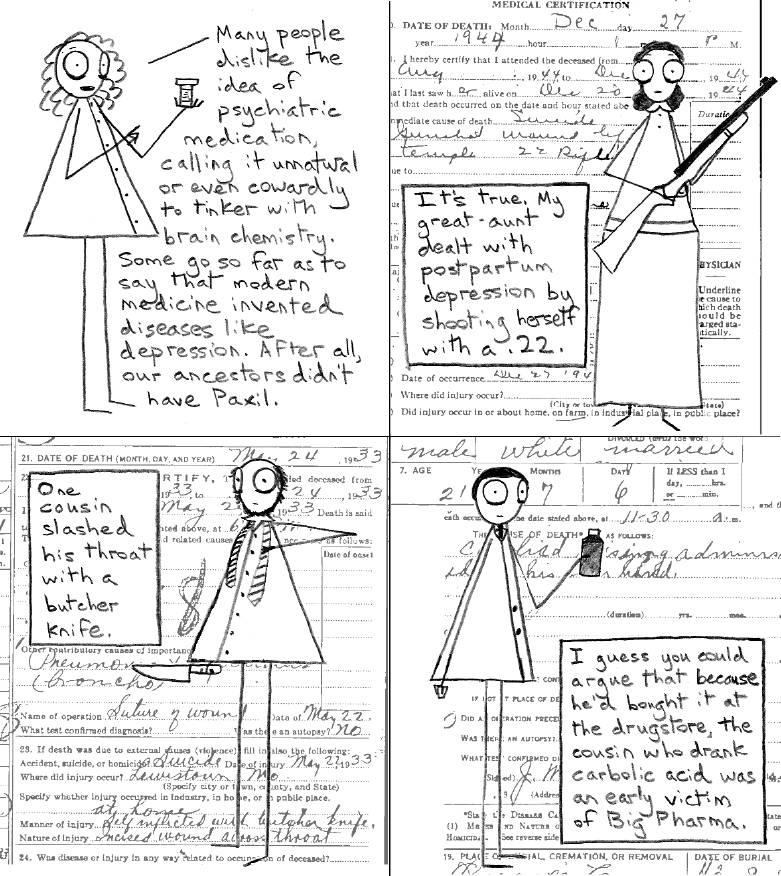 Many people
dislike the
idea of
psychiatric
medication,
calling it unnatural
or even cowardly
to tinker with
brain chemistry.
Some go so far as to
say that modern
medicine invented
diseases like
depression. After all,
our ancestors didn't
have Paxil.
MEDICAL CERTIFICATION
DATE OF DEATH: Month Dec day 27
year 1944 hour P M.
I hereby certify that I attended the deceased from
Aug 1944 to Dec 1944
at I last saw h er alive on Dec 20 1944
nd that death occurred on the date and hour stated abo
mmediate cause of death Suicide
Duratio
Gunshot wound left
temple 22 Rifle
ue to
It's true. My
great-aunt
dealt with
postpartum
depression by
shooting herself
with a .22.
HYSICIAN
Underline
e cause to
hich death
ould be
arged sta-
tically.
Date of occurrence Dec 27 194
Where did injury occur?
(City or to State)
Did injury occur in or about home, on farm, in industrial place, in public place?
21. DATE OF DEATH (MONTH, DAY, AND YEAR) May 24 1933
RTIFY, T ded deceased from
1933, to 24, 1933
May 2 1933 Death is said
ted above, at 6
d related causes nce were as follows:
Date of onset
One
cousin
slashed
his throat
with a
butcher
knife.
Other contributory causes of importance
Pneumon
Broncho
Name of operation Suture of wound Date of May 22
What test confirmed diagnosis? Was there an autopsy? No
23. If death was due to external causes (violence) fill in also the following:
Accident, suicide, or homicide? Suicide Date of injury May 22 1933
Where did injury occur? Lewistown Mo
(Specify city or town, county, and State)
Specify whether injury occurred in industry, in home, or in public place.
at home
Manner of injury Self inflicted with butcher knife.
Nature of injury Incised wound across throat
24. Was disease or injury in any way related to occupation of deceased?
male white married
7. AGE Ye MONTHS DAYS If LESS than 1
day, hrs.
or min.
21 7 6
eath occ e date stated above, at 11-30 a.m.
THE SE OF DEATH* AS FOLLOWS:
C lid ising adminis
his hand.
(duration) yrs. mos.
I guess you could
argue that because
he'd bought it at
the drugstore, the
cousin who drank
carbolic acid was
an early victim
of Big Pharma.
IF NOT PLACE OF DE
DID A OPERATION PRECED
WAS THERE AN AUTOPSY?
WHAT TEST CONFIRMED
(Signed) J. M
(Address
*State DISEASE CA
(1) ME AND NATURE O
HOMICIDAL See reverse side
19. PLACE OF BURIAL, CREMATION, OR REMOVAL DATE OF BURIAL